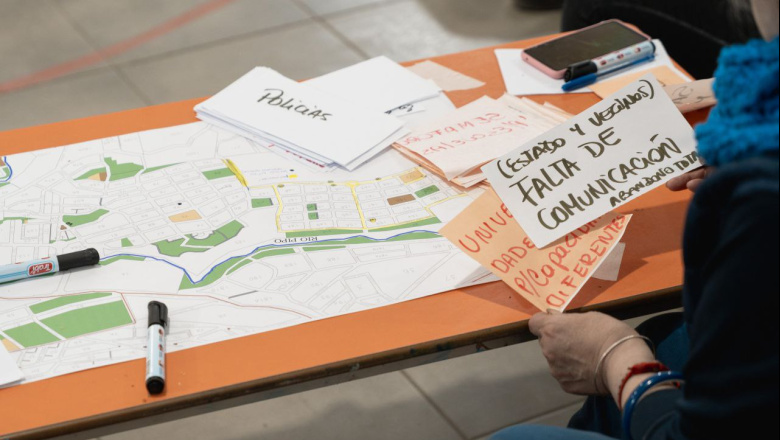 Policías
(ESTADO Y VECINOS)
FALTA DE
COMUNICACIÓN
ABANDONO TOTAL
UNIVE
DADE
P/Capac
DIFERENTES
RIO PIPO